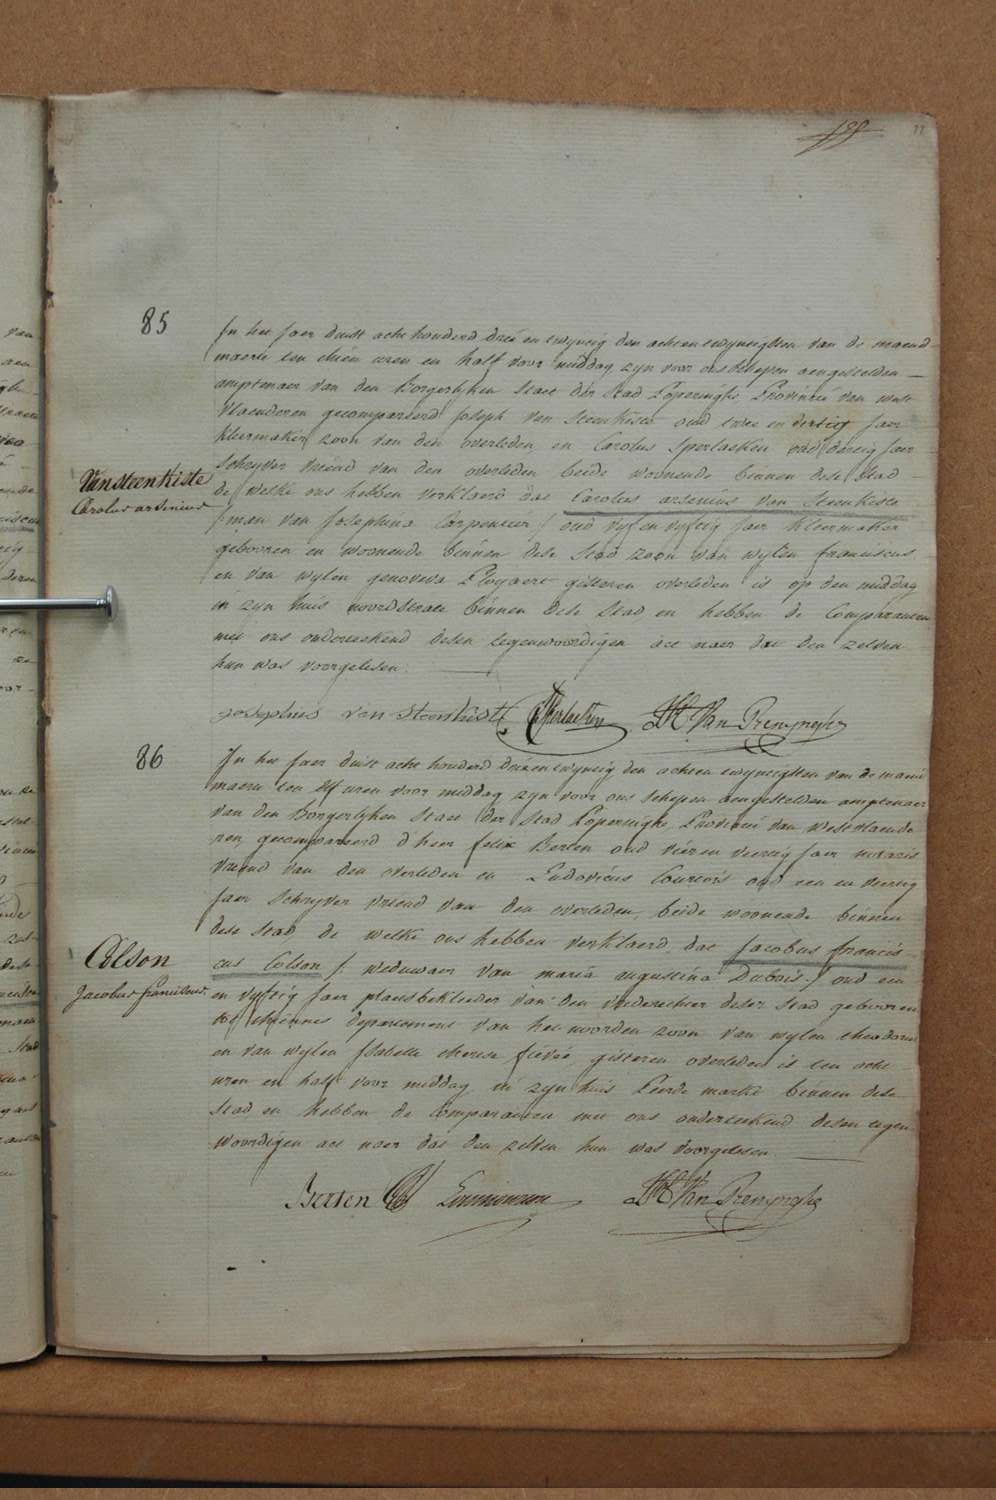 85
Vansteenkiste
Carolus arsenius
In het jaer duist acht honderd drie en twyntig den achten twyntigsten van de maend
maerte ten thien uren en half voor middag zyn voor ons schepen aengestelden
amptenaer van den Borgerlyken Staet der Stad Poperinghe Provincie van west
Vlaenderen gecompareerd Joseph van Steenkiste oud twee en dertig jaer
kleermaker zoon van den overleden, en Carolus Sperlaeken oud dertig jaer
schryver vriend van den overleden beide woonende binnen dese stad
de welke ons hebben verklaerd dat Carolus arsenius van Steenkiste
/ man van Josephina Carpentier / oud vyf en vyftig jaer kleermaker
gebooren en woonende binnen dese Stad zoon van wylen franciscus
en van wylen genoveva Ployaert gisteren overleden is op den middag
in zyn huis noordstraete binnen dese stad, en hebben de Comparanten
met ons onderteekend desen tegenwoordigen act naer dat den zelven
hun was voorgelesen.
Josephus van Steenkiste Sperlaeken Van Renynghe
86
Colson
Jacobus franciscus
In het jaer duist acht honderd dry en twyntig den achten twyntigsten van de maend
maerte ten elf uren voor middag zyn voor ons schepen aengestelden amptenaer
van den Borgerlyken Staet der Stad Poperinghe Provincie van Westvlaende
ren gecompareerd d'heer felix Berten oud vier en veertig jaer notaris
vriend van den overleden en Ludovicus oud een en veertig
jaer Schryver vriend van den overleden, beide woonende binnen
dese stad de welke ons hebben verklaerd dat Jacobus francis-
cus Colson /: weduwaer van maria augustina Dubois :/ oud een
en vyftig jaer plaetsbekleeder van den vrederechter deser stad gebooren
tot thiennes departement van het noorden zoon van wylen theodorus
en van wylen Isabelle therese fiévée, gisteren overleden is ten acht
uren en half voor middag in zyn huis Peerde markt binnen dese
stad en hebben de Comparanten met ons onderteekend desen tegen
woordigen act naer dat den zelven hun was voorgelesen.
Berten Van Renynghe